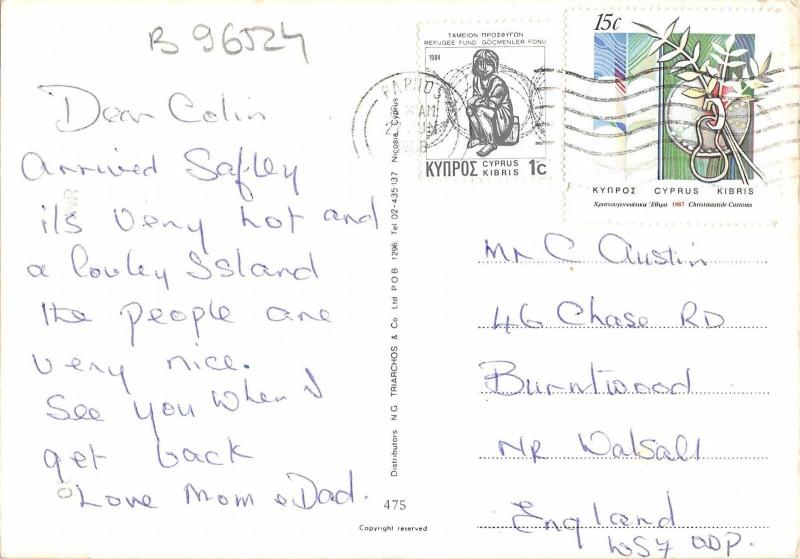 B 96524
Dear Colin
Arrived Safley
its very hot and
a lovley Island
the people are
very nice.
See you when I
get back
Love Mom & Dad.
475
Copyright reserved
Distributors N G TRIARCHOS & Co Ltd P O B 1296, Tel 02-435137 Nicosia, Cyprus
PAPHOS
AM
ΤΑΜΕΙΟΝ ΠΡΟΣΦΥΓΩΝ
REFUGEE FUND GÖCMENLER FONU
1984
ΚΥΠΡΟΣ CYPRUS KIBRIS 1c
15c
ΚΥΠΡΟΣ CYPRUS KIBRIS
Χριστουγεννιάτικα Έθιμα 1987 Christmastide Customs
Mr C Austin
46 Chase RD
Burntwood
NR Walsall
England
WS7 0DP.